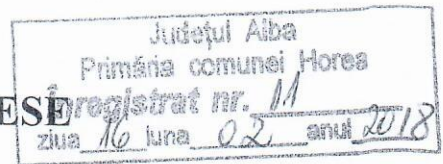 Județul Alba
Primăria comunei Horea
ESE Înregistrat nr. 11
ziua 16 luna 02 anul 2018